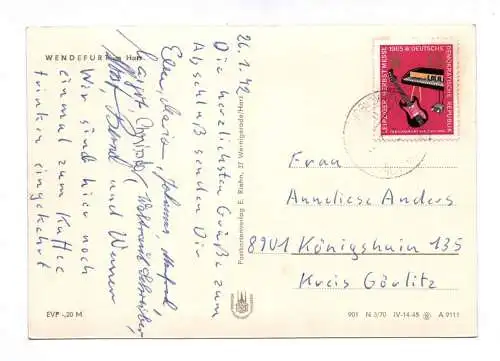 WENDEFURTH Harz
26.1.42
Die herzlichsten Grüße zum
Abschluß senden Dir
Johannes
und Werner
Wir sind hier noch
einmal zum Kaffee
trinken eingekehrt
EVP -,20 M
Postkartenverlag E. Riehn, 37 Wernigerode/Harz
901 N 3/70 IV-14-45 A 9111
LEIPZIGER HERBSTMESSE 1965
DEUTSCHE DEMOKRATISCHE REPUBLIK
Frau
Anneliese Anders
8901 Königshain 135
Kreis Görlitz